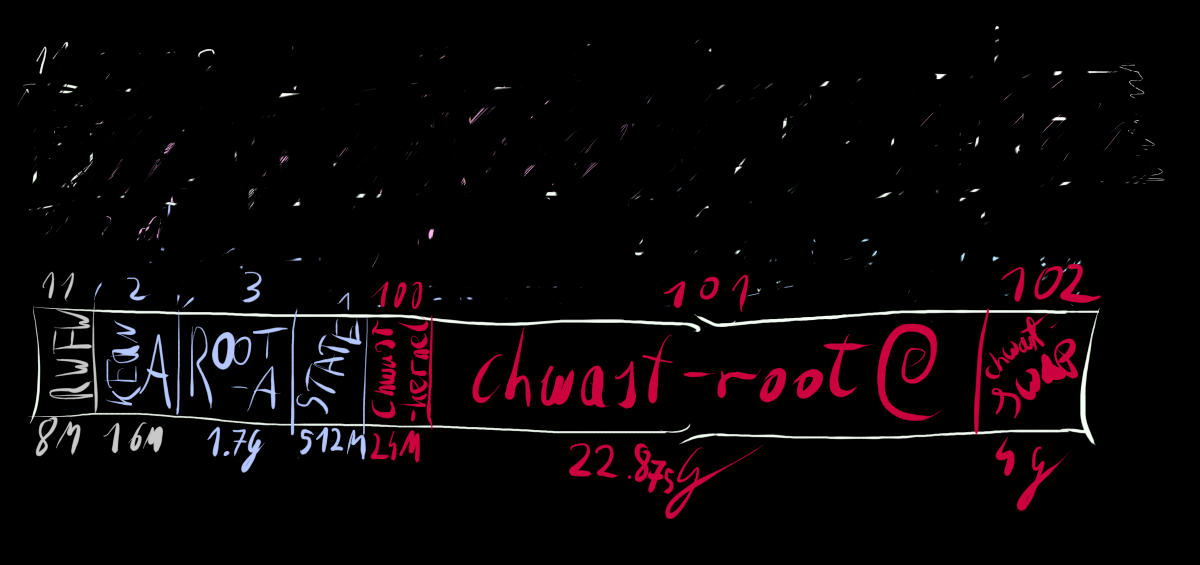 1
11 2 3 1 100 101 102
RWFW KERN A ROOT -A STATE Chwast -kernel chwast-root@ chwast- SWAP
8M 16M 1.7g 512M 24M 22.875g 4g